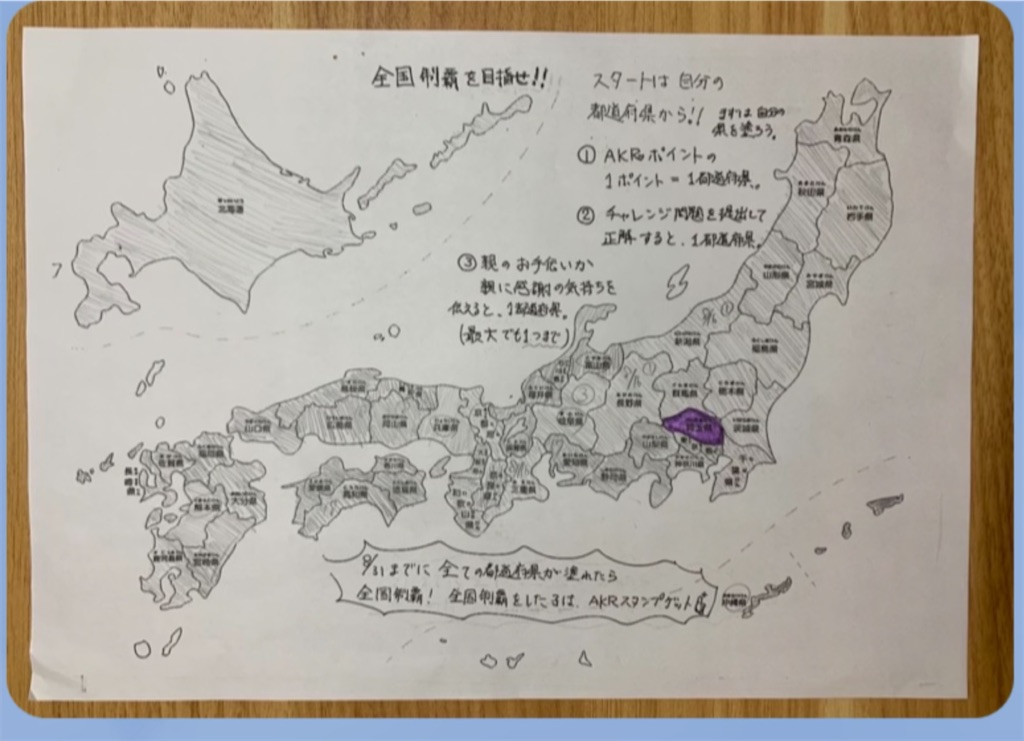 全国制覇を目指せ!!
スタートは自分の
都道府県から!! まずは自分の
県を塗ろう。
① AKRポイントの
1ポイント=1都道府県。
② チャレンジ問題を提出して
正解すると、1都道府県。
③ 親のお手伝いか
親に感謝の気持ちを
伝えると、1都道府県。
(最大でも1つまで)
北海道
青森県
秋田県
岩手県
山形県
宮城県
新潟県
福島県
富山県
福井県
長野県
群馬県
栃木県
埼玉県
茨城県
岐阜県
山梨県
神奈川県
千葉県
愛知県
静岡県
三重県
滋賀県
京都府
奈良県
和歌山県
兵庫県
鳥取県
島根県
岡山県
広島県
山口県
香川県
徳島県
愛媛県
高知県
福岡県
佐賀県
長崎県
大分県
熊本県
宮崎県
鹿児島県
沖縄県
8/31までに 全ての都道府県が塗れたら
全国制覇! 全国制覇をしたるは、AKRスタンプゲット